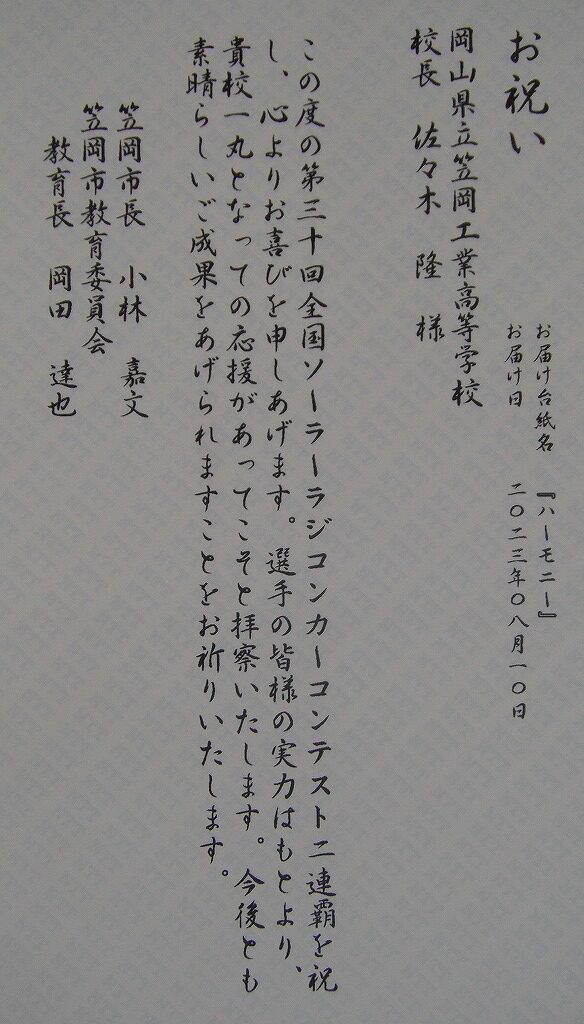 お祝い
お届け台紙名 『ハーモニー』
お届け日 二〇二三年〇八月一〇日
岡山県立笠岡工業高等学校
校長 佐々木 隆 様
この度の第三十回全国ソーラーラジコンカーコンテスト二連覇を祝
し、心よりお喜びを申しあげます。選手の皆様の実力はもとより、
貴校一丸となっての応援があってこそと拝察いたします。今後とも
素晴らしいご成果をあげられますことをお祈りいたします。
笠岡市長 小林 嘉文
笠岡市教育委員会
教育長 岡田 達也